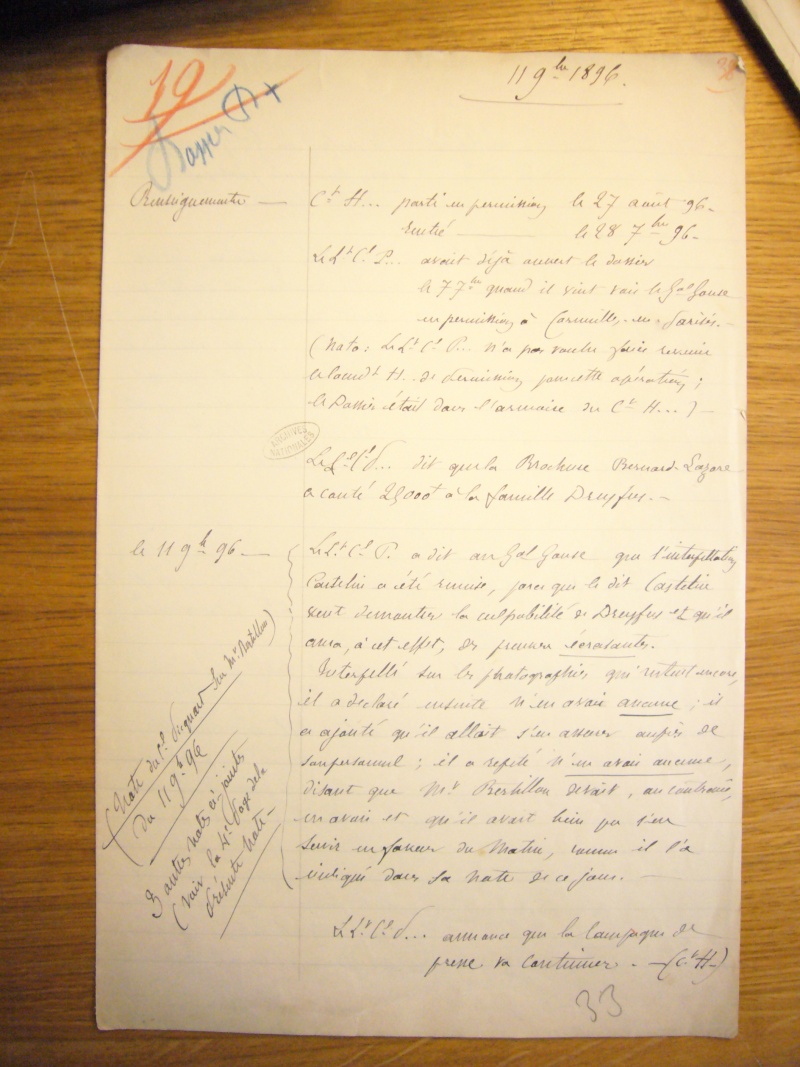 19
Dossier D +
11 9bre 1896.
Renseignements — Ct H... parti en permission le 27 août 96 –
Rentré ——— le 28 7bre 96 –
Le Lt Cl P... avait déjà ouvert le dossier
le 7 7bre quand il vint voir le Gal Gonse
en permission à Cormeilles-en-Parisis. –
(Nota : Le Lt Cl P... n'a pas voulu faire revenir
le Comdt H... de permission pour cette opération ;
le Dossier était dans l'armoire du Ct H...) –
ARCHIVES NATIONALES
Le Lt Cl P... dit que la Brochure Bernard-Lazare
a coûté 25000f à la famille Dreyfus. –
le 11 9bre 96 — Le Lt Cl P. a dit au Gal Gonse que l'interpellation
Castelin a été remise, parce que le dit Castelin
veut démontrer la culpabilité de Dreyfus et qu'il
aura, à cet effet, des preuves écrasantes.
Interpellé sur les photographies qui existent encore,
il a déclaré ensuite n'en avoir aucune ; il
a ajouté qu'il allait s'en assurer auprès de
son personnel ; il a répété n'en avoir aucune,
disant que Mr Bertillon devait, au contraire,
en avoir et qu'il avait bien pu s'en
servir en faveur du Matin, comme il l'a
indiqué dans sa note de ce jour. —
(Note du Cl Picquart sur Mr Bertillon)
du 11 9bre 96
3 autres notes ci-jointes
(voir la 4e Page de la
présente note –
Le Lt Cl P... annonce que la Campagne de
presse va continuer. — (Ct H–)
33